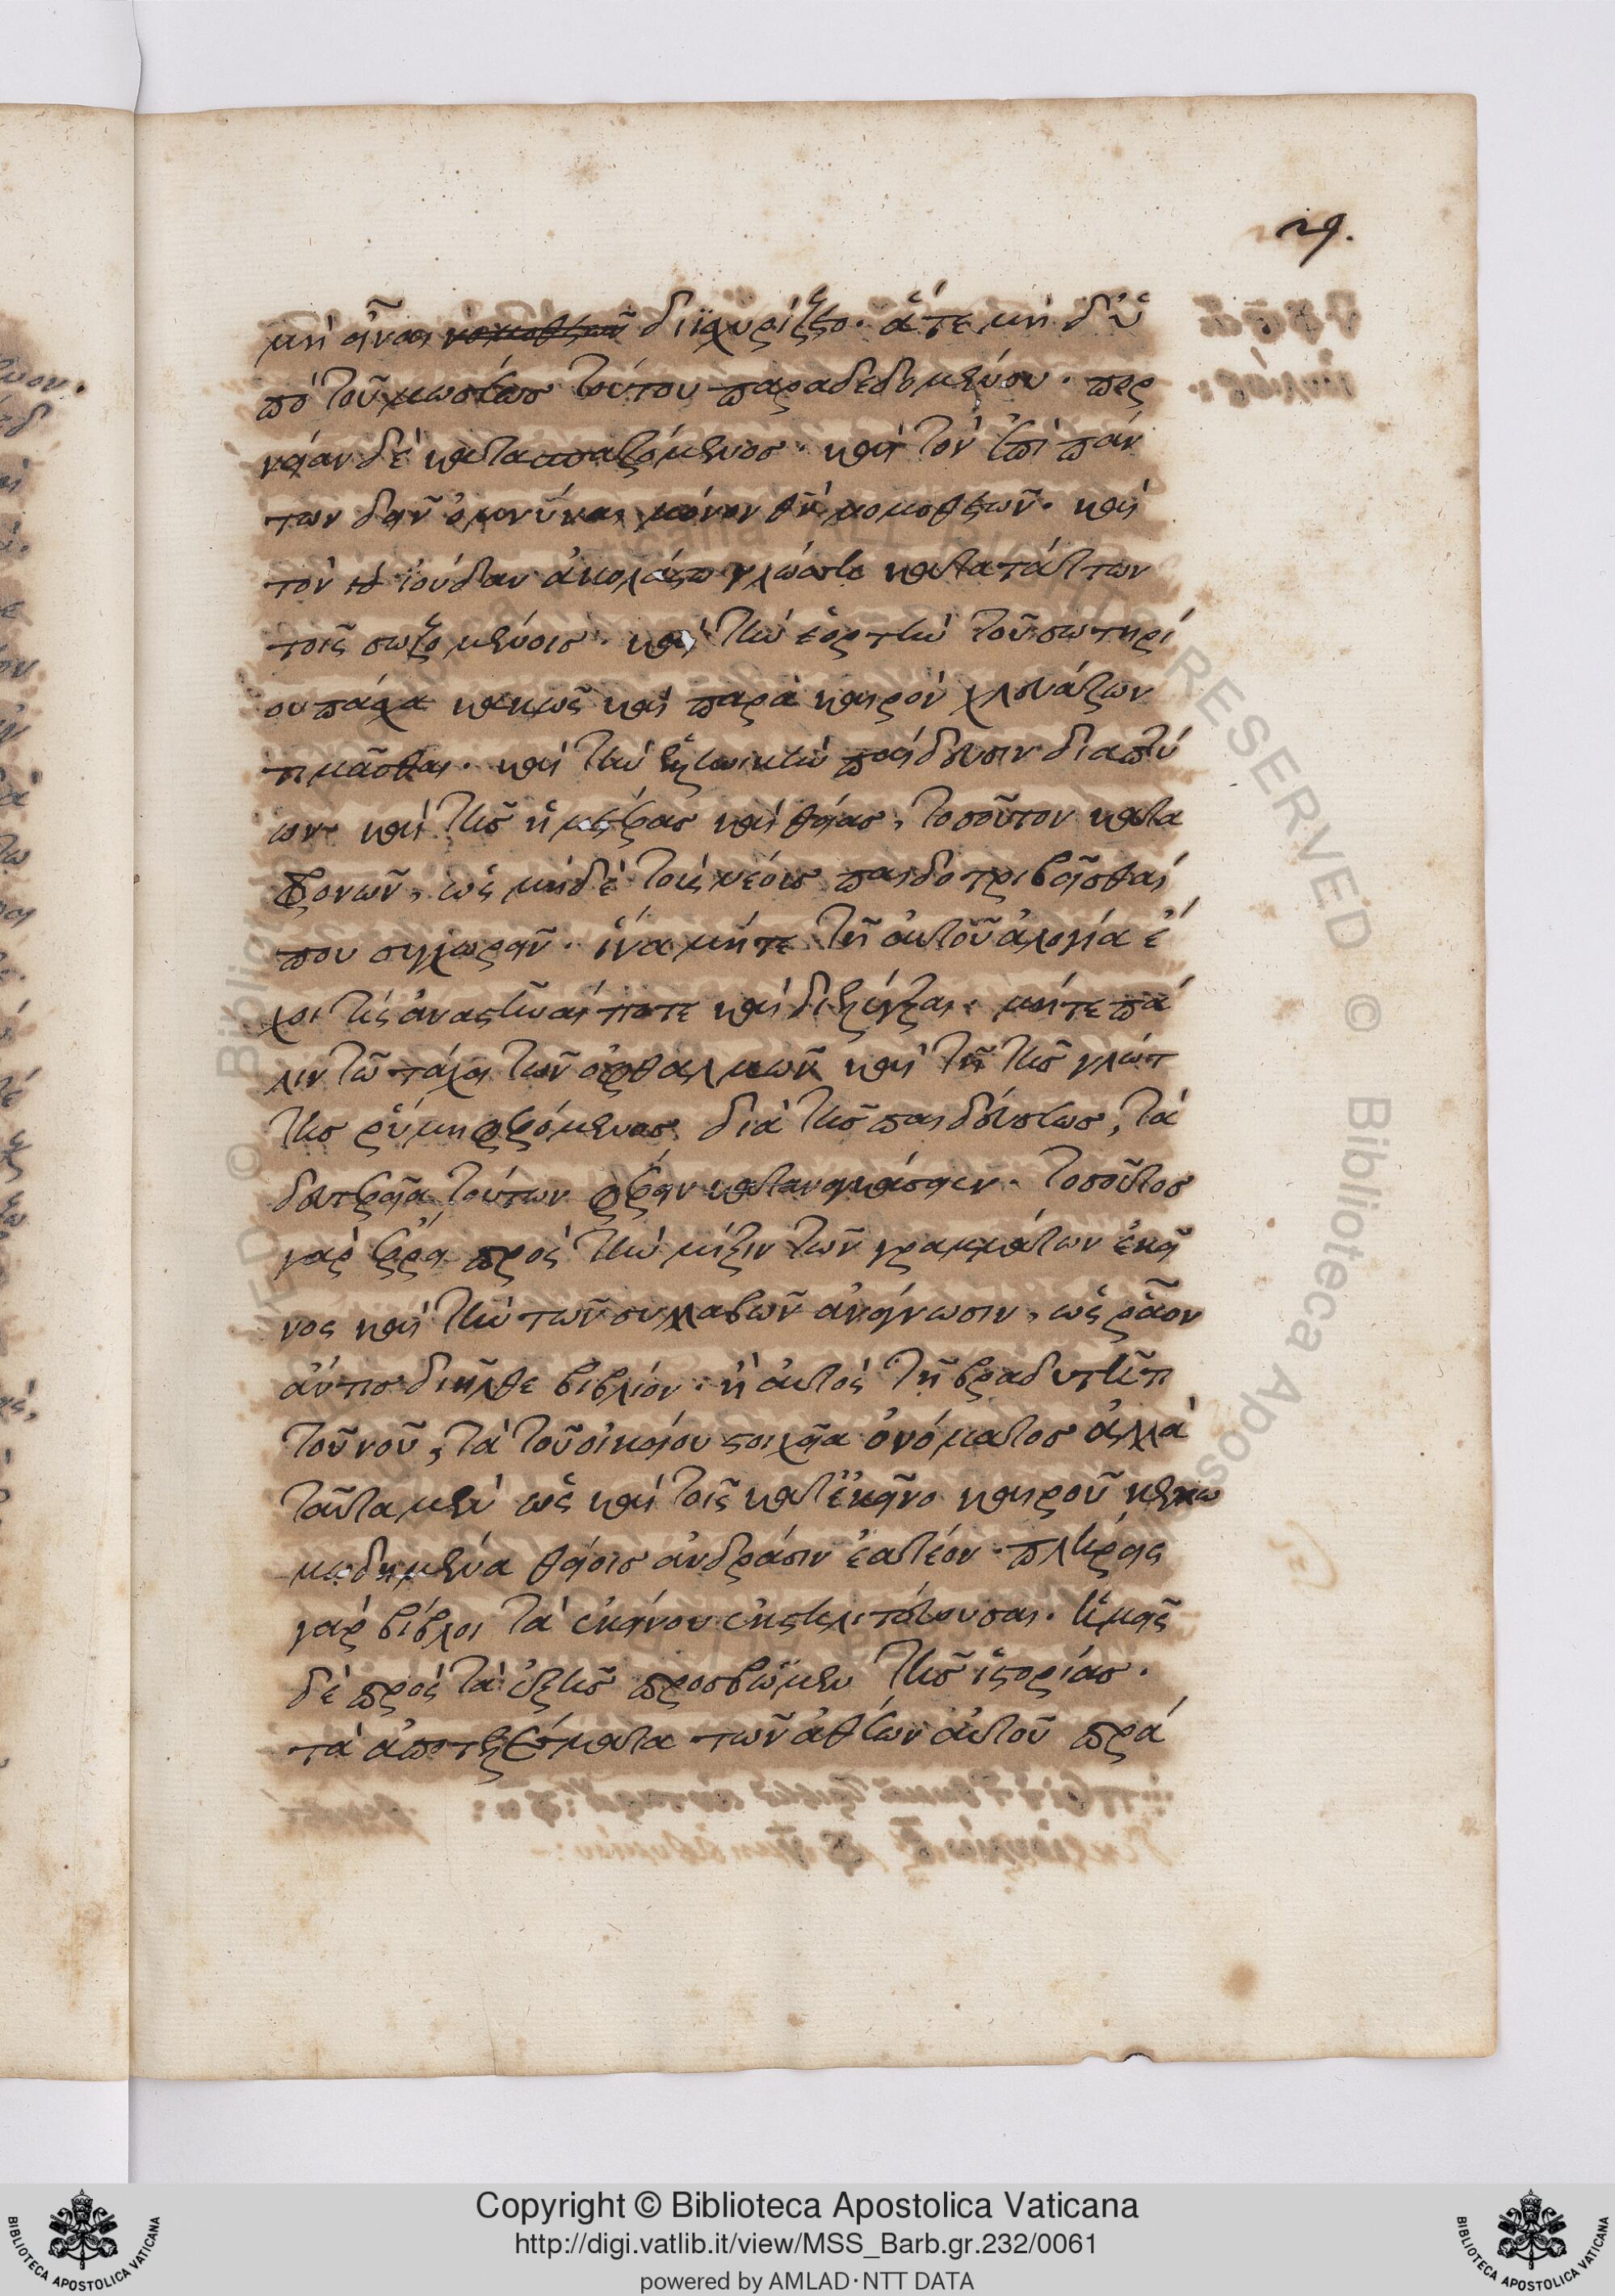 29.
μὴ εἶναι νομοθετεῖ διϊσχυρίζετο. ἅτε μὴ δὲ ὑ
πὸ τοῦ μωσέως τούτου παραδεδομένου. πορ
νείαν δὲ κατασπαζόμενος. καὶ τὸν ἐπὶ πάν
των δεῖν ὀμνύναι μόνον θν̄ νομοθετῶν. καὶ
τὸν ἰούδαν ἀκολάστω γλώσση κατατάττων
τοῖς σωζομένοις. καὶ τὴν ἑορτὴν τοῦ σωτηρί
ου πάσχα κακῶς καὶ παρὰ καιρὸν χλευάζων
τιμᾶσθαι. καὶ τὴν ἑλληνικὴν παίδευσιν διαπτύ
ων καὶ τῆς ἡμετέρας καὶ θείας, τοσοῦτον κατα
φρονῶν, ὡς μηδὲ τοῖς νέοις παιδοτριβεῖσθαί
που συγχωρεῖν. ἵνα μήτε τῆ αὐτοῦ ἀλογία ἔ
χοι τὶς ἀναστῆναί ποτε καὶ διελέγξαι. μήτε πά
λιν τῶ τάχει τῶν ὀφθαλμῶν καὶ τῆ τῆς γλώτ
της ῥύμη φερόμενος διὰ τῆς παιδεύσεως, τὰ
δευτερεῖα τούτων φέρειν καταναγκάσειεν. τοσοῦτος
γὰρ πρὸς τὴν μίξιν τῶν γραμμάτων ἐκεῖ
νος καὶ τὴν τῶν συλλαβῶν ἀνάγνωσιν, ὡς ῥᾶον
ἄν τις διῆλθε βιβλίον. ἢ αὐτὸς τῆ βραδυτῆτι
τοῦ νοῦ, τὰ τοῦ οἰκείου στοιχεῖα ὀνόματος ἀλλὰ
ταῦτα μὲν ὡς καὶ τοῖς κατ' ἐκεῖνο καιροῦ κεκω
μωδημένα θείοις ἀνδράσιν ἐατέον. πλήρεις
γὰρ βίβλοι τὰ ἐκείνου ἐκστηλιτεύουσαι. ἡμεῖς
δὲ πρὸς τὰ ἑξῆς προσβῶμεν τῆς ἱστορίας.
τὰ ἀποτελέσματα τῶν ἀθέων αὐτοῦ πρά
Copyright © Biblioteca Apostolica Vaticana
http://digi.vatlib.it/view/MSS_Barb.gr.232/0061
powered by AMLAD·NTT DATA
BIBLIOTECA APOSTOLICA VATICANA
BIBLIOTECA APOSTOLICA VATICANA